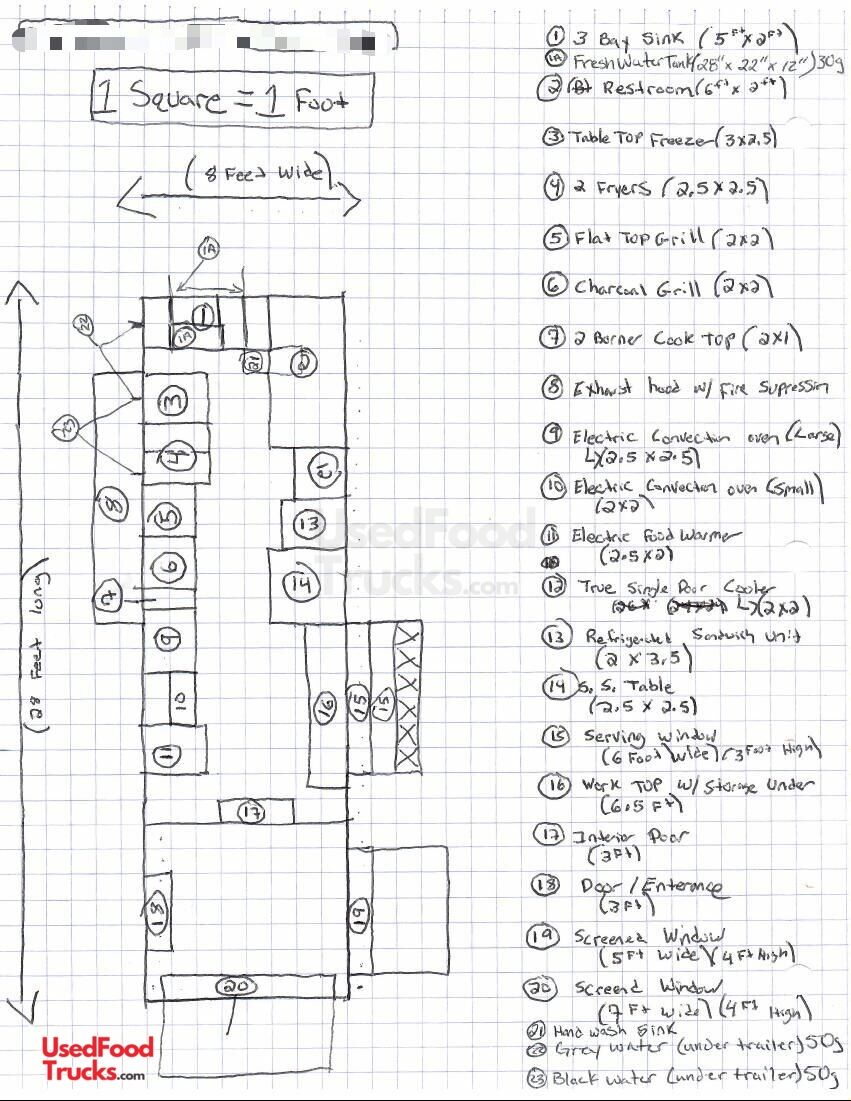 1 Square = 1 Foot
(8 Feet Wide)
(28 Feet long)
1A
22
1
1A
21
2
3
23
4
12
8
5
13
6
14
7
9
10
16
15
15
11
17
18
19
20
① 3 Bay Sink (5Ft x 2Ft)
1A Fresh Water Tank (28" x 22" x 12") 30g
② Restroom (6ft x 2ft)
③ Table Top Freeze (3x2.5)
④ 2 Fryers (2.5 x 2.5)
⑤ Flat Top Grill (2x2)
⑥ Charcoal Grill (2x2)
⑦ 2 Borner Cook Top (2x1)
⑧ Exhaust hood w/ Fire Supression
⑨ Electric Convection oven (Large)
↳(2.5 x 2.5)
⑩ Electric Convection oven (Small)
(2x2)
⑪ Electric Food Warmer
(2.5x2)
⑫ True Single Door Cooler
↳(2x2)
⑬ Refrigerated Sandwich Unit
(2 x 3.5)
⑭ S. S. Table
(2.5 x 2.5)
⑮ Serving window
(6 Foot Wide) (3 Foot High)
⑯ Work TOP w/ Storage Under
(6.5 Ft)
⑰ Interior Door
(3Ft)
⑱ Door / Enterance
(3 Ft)
⑲ Screened Window
(5Ft wide) (4 Ft High)
⑳ Screend Window
(7 Ft wide) (4 Ft High)
㉑ Hand wash Sink
㉒ Grey water (under trailer) 50g
㉓ Black water (under trailer) 50g
UsedFood
Trucks.com
UsedFood
Trucks.com